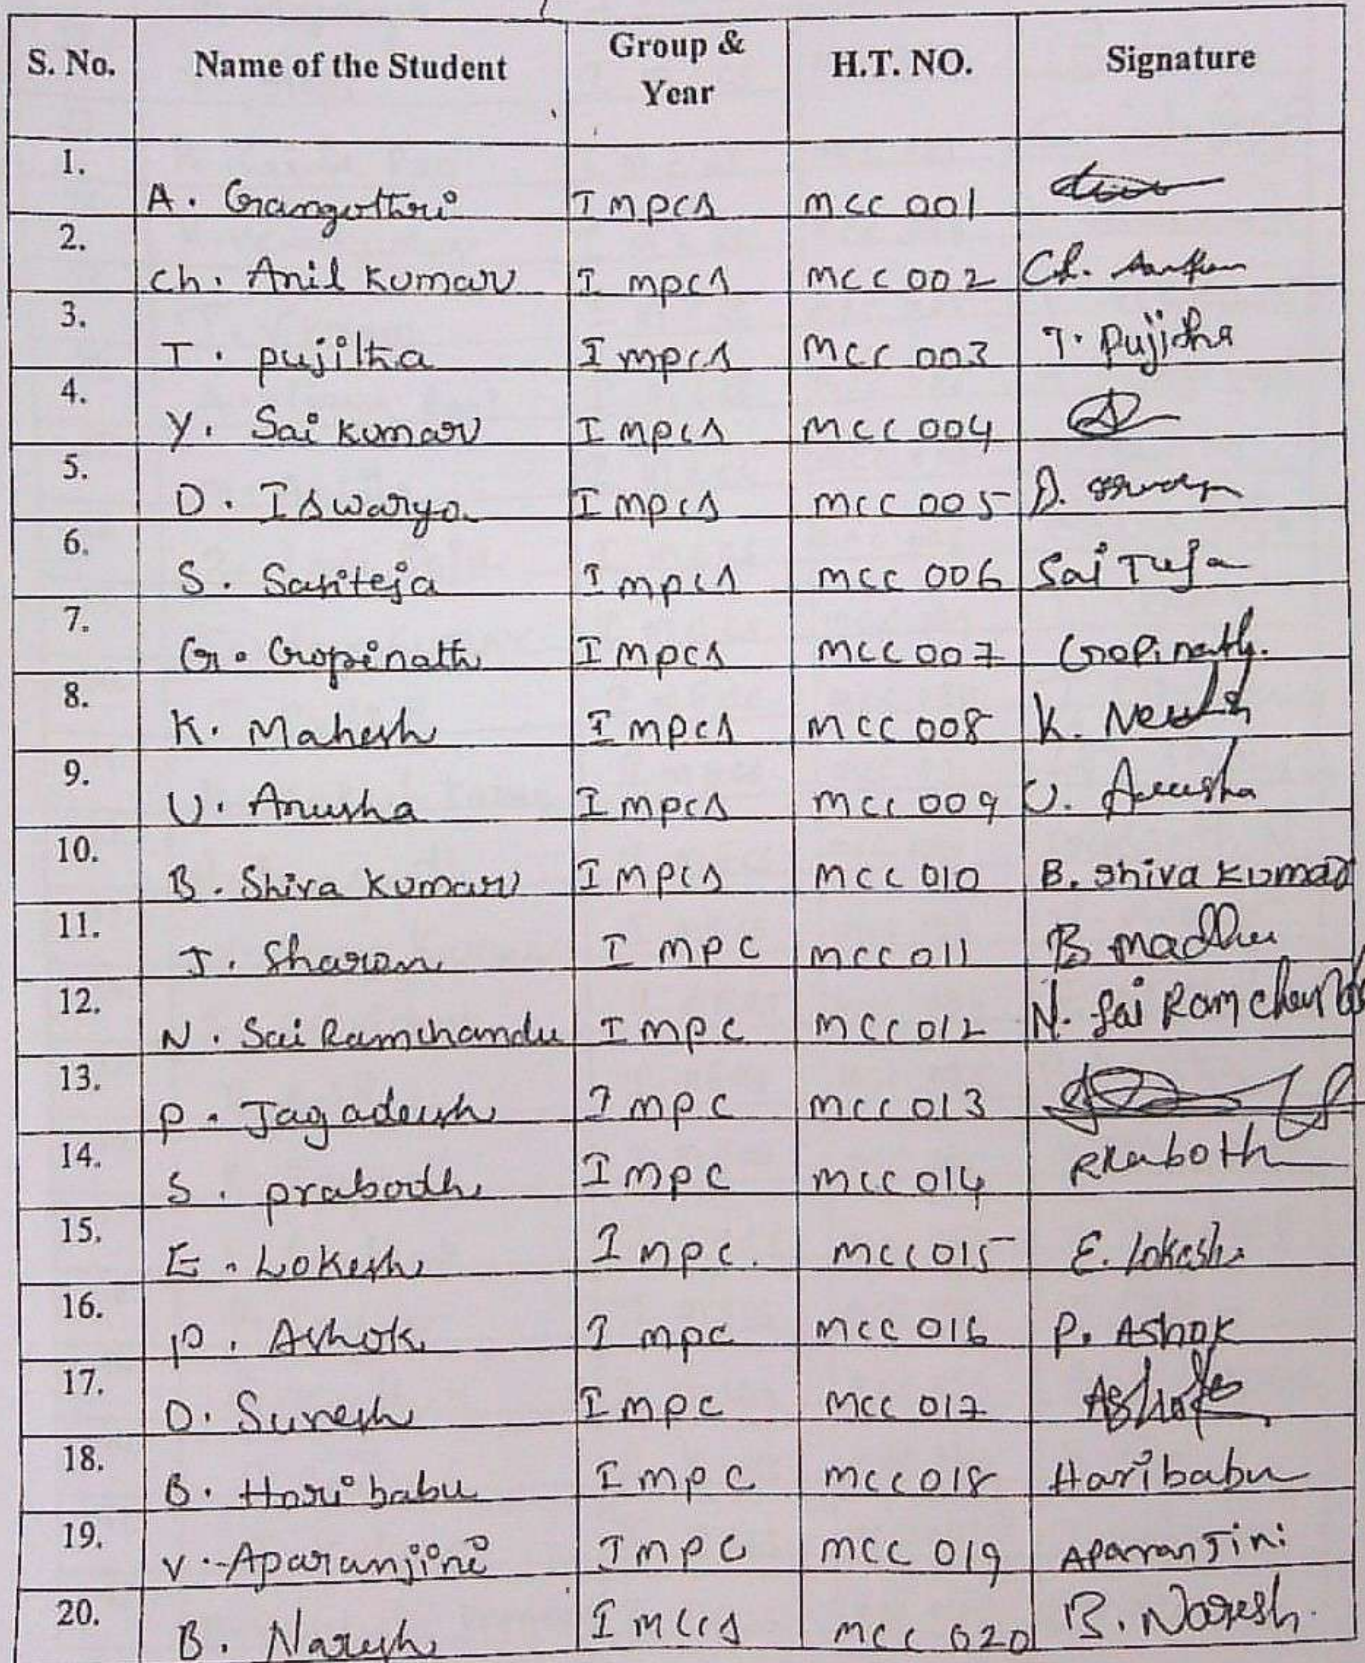 S. No. Name of the Student Group & Year H.T. NO. Signature
1. A. Gangothri I mpcs mcc 001
2. Ch. Anil Kumar I mpcs mcc 002 Ch.
3. T. pujitha I mpcs mcc 003 T. Pujitha
4. Y. Sai Kumar I mpcs mcc 004
5. D. Iswarya I mpcs mcc 005 D.
6. S. Saiteja I mpcs mcc 006 Sai Teja
7. G. Gopinath I mpcs mcc 007 Gopinath.
8. K. Mahesh I mpcs mcc 008 K.
9. U. Anusha I mpcs mcc 009 U. Anusha
10. B. Shiva Kumar I mpcs mcc 010 B. Shiva Kumar
11. J. Sharon I mpc mcc 011 B madhu
12. N. Sai Ramchandu I mpc mcc 012 N. Sai Ram Chandu
13. P. Jagadeesh I mpc mcc 013
14. S. prabodh I mpc mcc 014 Praboth
15. E. Lokesh I mpc. mcc 015 E. Lokesh
16. P. Ashok I mpc mcc 016 P. Ashok
17. D. Suresh I mpc mcc 017 Ashok
18. B. Hari babu I mpc mcc 018 Hari babu
19. V. Aparanjini I mpc mcc 019 Aparanjini
20. B. Naresh I mccs mcc 020 B. Naresh.